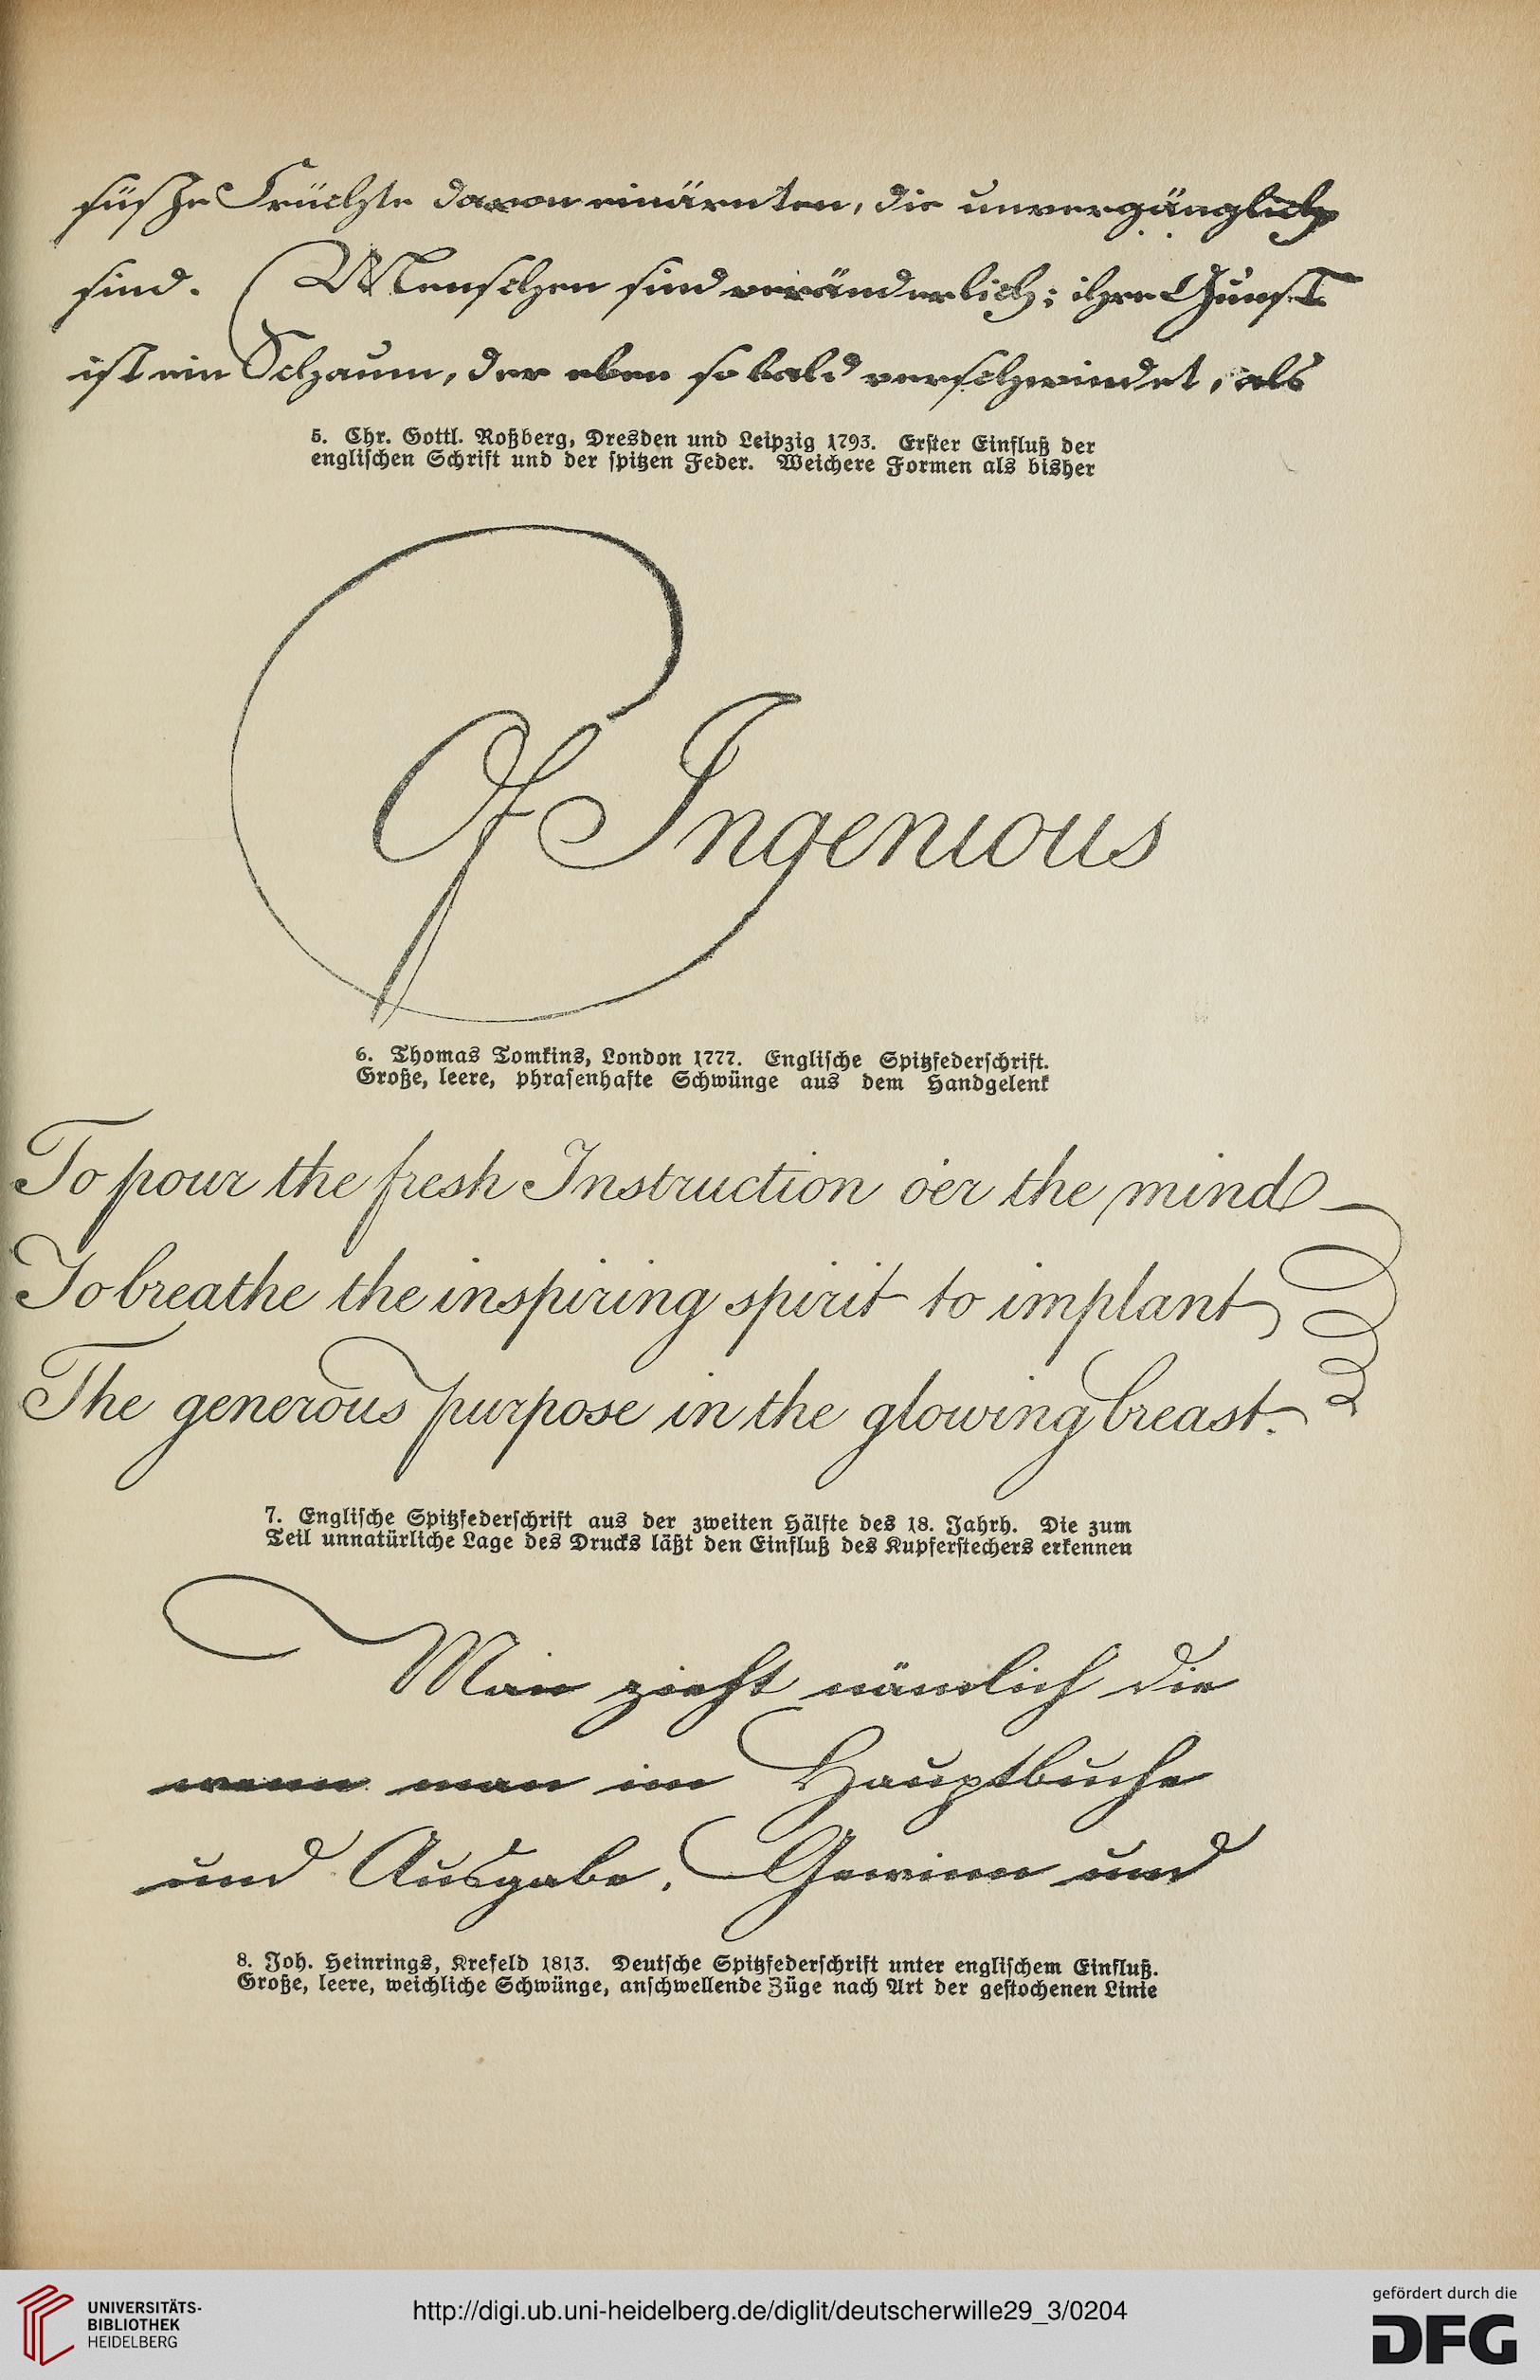 süsze Früchte davon einärnten, die unvergänglich
sind. Menschen sind veränderlich; ihre Gunst
ist ein Schaum, der eben so bald verschwindet, als
5. Chr. Gottl. Roßberg, Dresden und Leipzig 1793. Erster Einfluß der
englischen Schrift und der spitzen Feder. Weichere Formen als bisher
Of Ingenious
6. Thomas Tomkins, London 1777. Englische Spitzfederschrift.
Große, leere, phrasenhafte Schwünge aus dem Handgelenk
To pour the fresh Instruction o'er the mind
To breathe the inspiring spirit to implant
The generous purpose in the glowing breast.
7. Englische Spitzfederschrift aus der zweiten Hälfte des 18. Jahrh. Die zum
Teil unnatürliche Lage des Drucks läßt den Einfluß des Kupferstechers erkennen
Man zieht nämlich die
wenn man im Hauptbuche
und Ausgabe, Gewinn und
8. Joh. Heinrings, Krefeld 1813. Deutsche Spitzfederschrift unter englischem Einfluß.
Große, leere, weichliche Schwünge, anschwellende Züge nach Art der gestochenen Linie
UNIVERSITÄTS-
BIBLIOTHEK
HEIDELBERG
http://digi.ub.uni-heidelberg.de/diglit/deutscherwille29_3/0204
gefördert durch die
DFG